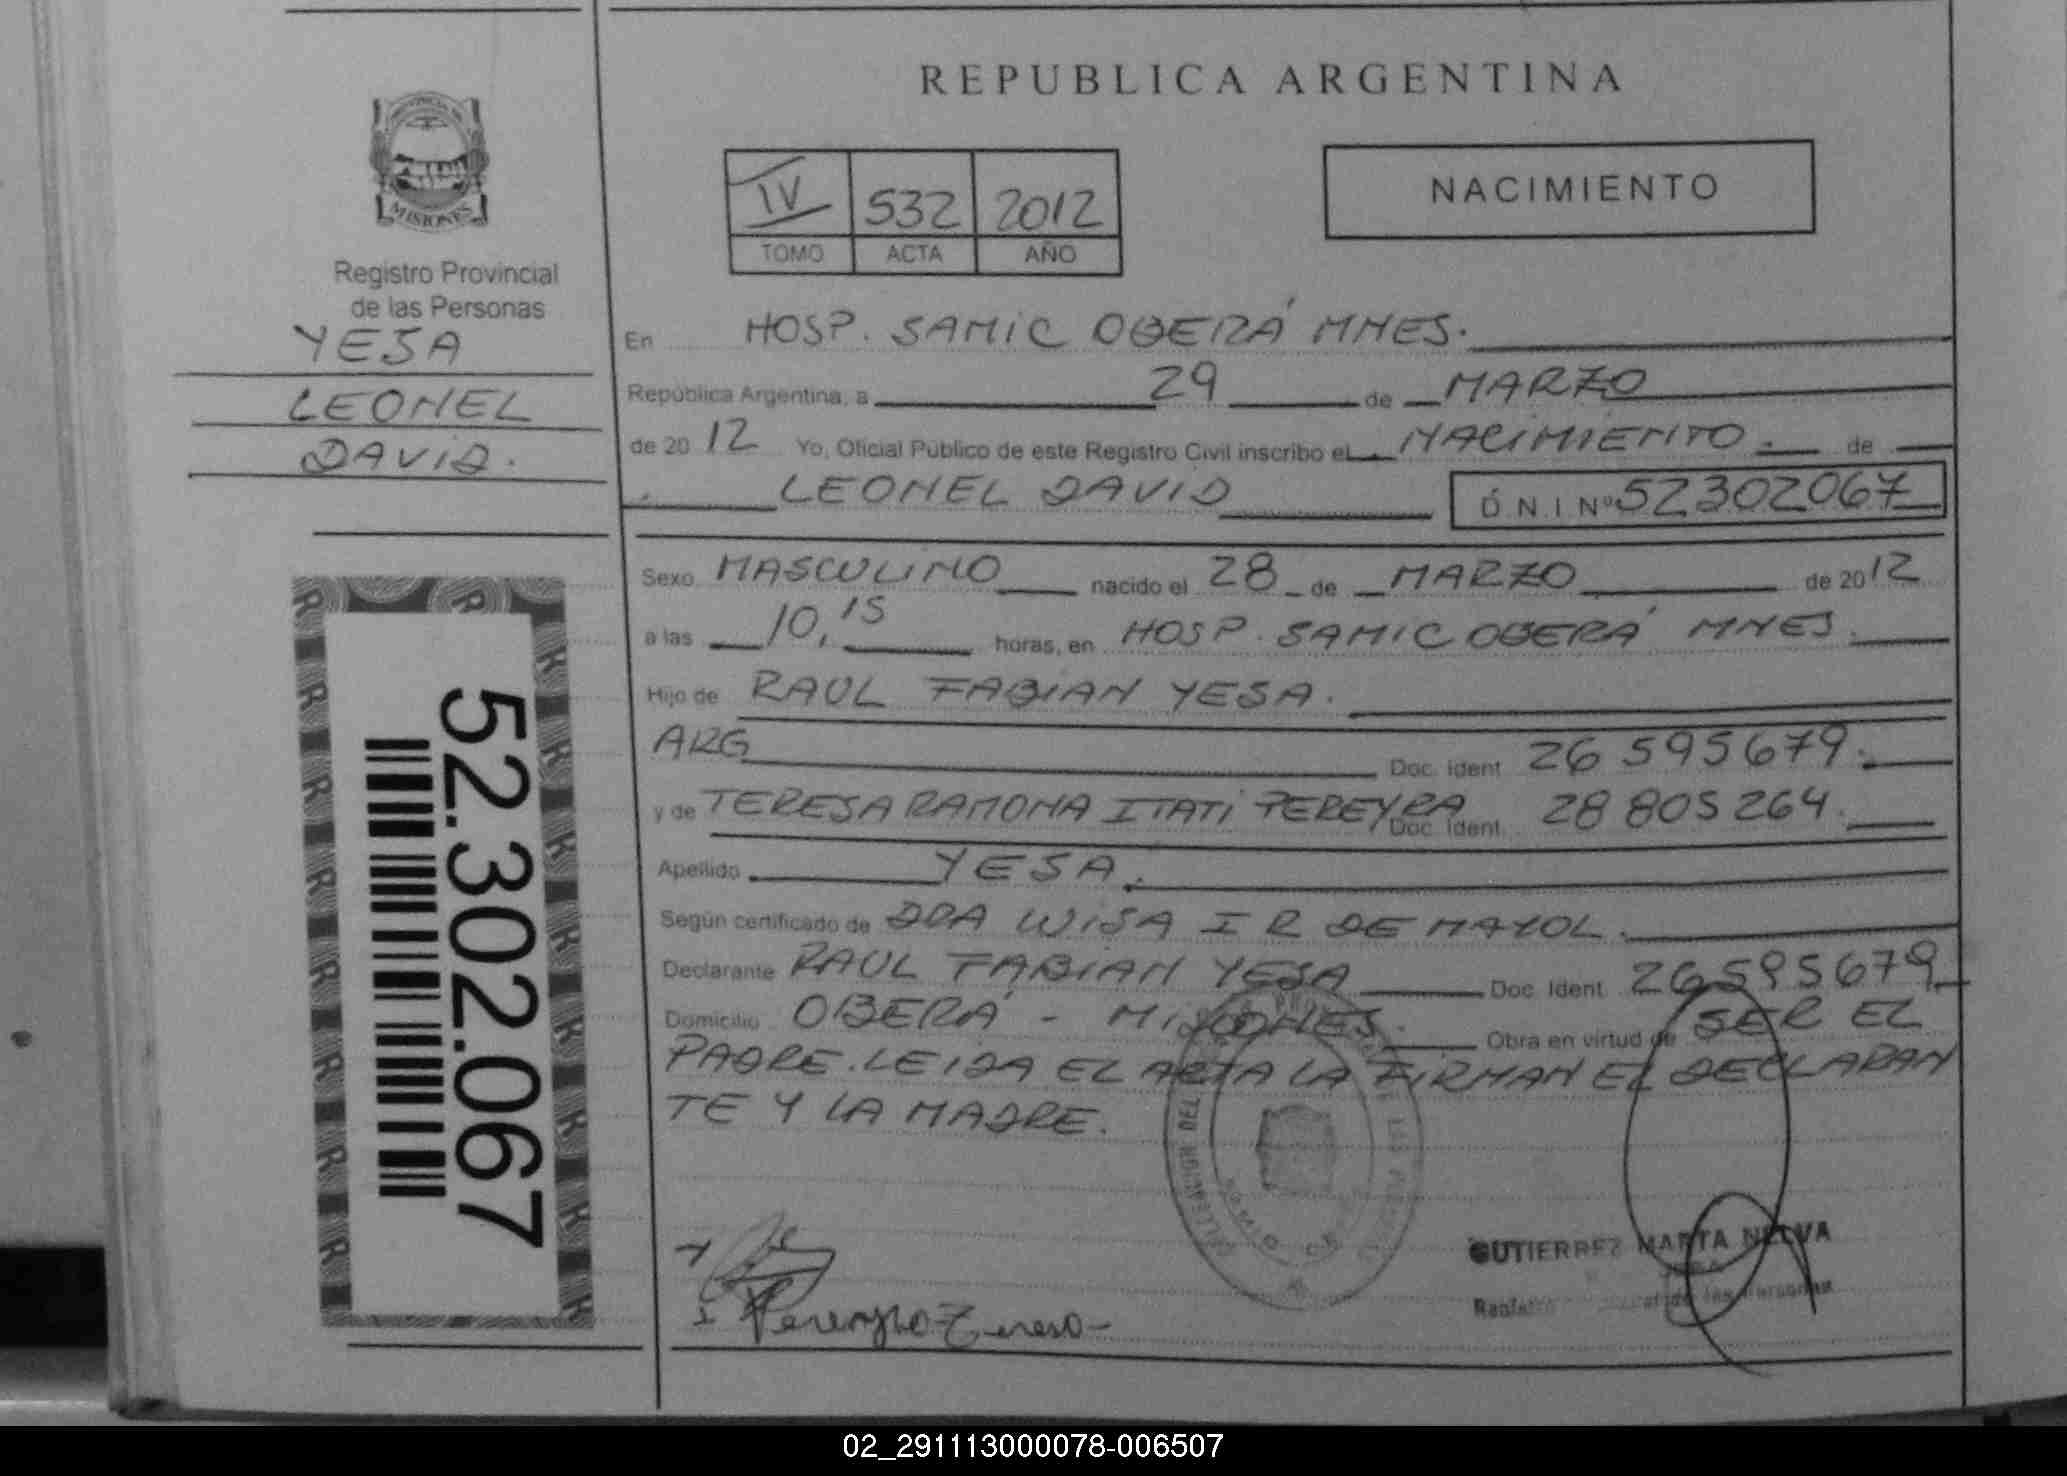 REPUBLICA ARGENTINA
PROVINCIA DE
MISIONES
Registro Provincial
de las Personas
YESA
LEONEL
DAVID.
52.302.067
IV 532 2012
TOMO ACTA AÑO
NACIMIENTO
En HOSP. SAMIC OBERÁ MNES.
República Argentina, a 29 de MARZO
de 2012 Yo, Oficial Público de este Registro Civil inscribo el NACIMIENTO. de
LEONEL DAVID D.N.I Nº 52302067
Sexo MASCULINO nacido el 28 de MARZO de 2012
a las 10,15 horas, en HOSP. SAMIC OBERÁ MNES.
Hijo de RAUL FABIAN YESA.
ARG Doc. ident 26 595679.
y de TERESA RAMONA ITATI PEREYRA Doc. Ident. 28 805 264.
Apellido YESA.
Según certificado de DRA I R DE MAYOL.
Declarante RAUL FABIAN YESA Doc. Ident. 26595679
Domicilio OBERÁ - MISIONES. Obra en virtud de SER EL
PADRE. LEIDA EL ACTA LA FIRMAN EL DECLARAN
TE Y LA MADRE.
DELEGACION DEL
GUTIERREZ MARTA NELVA
Registro de las Personas
Pereyra Teresa
02_291113000078-006507